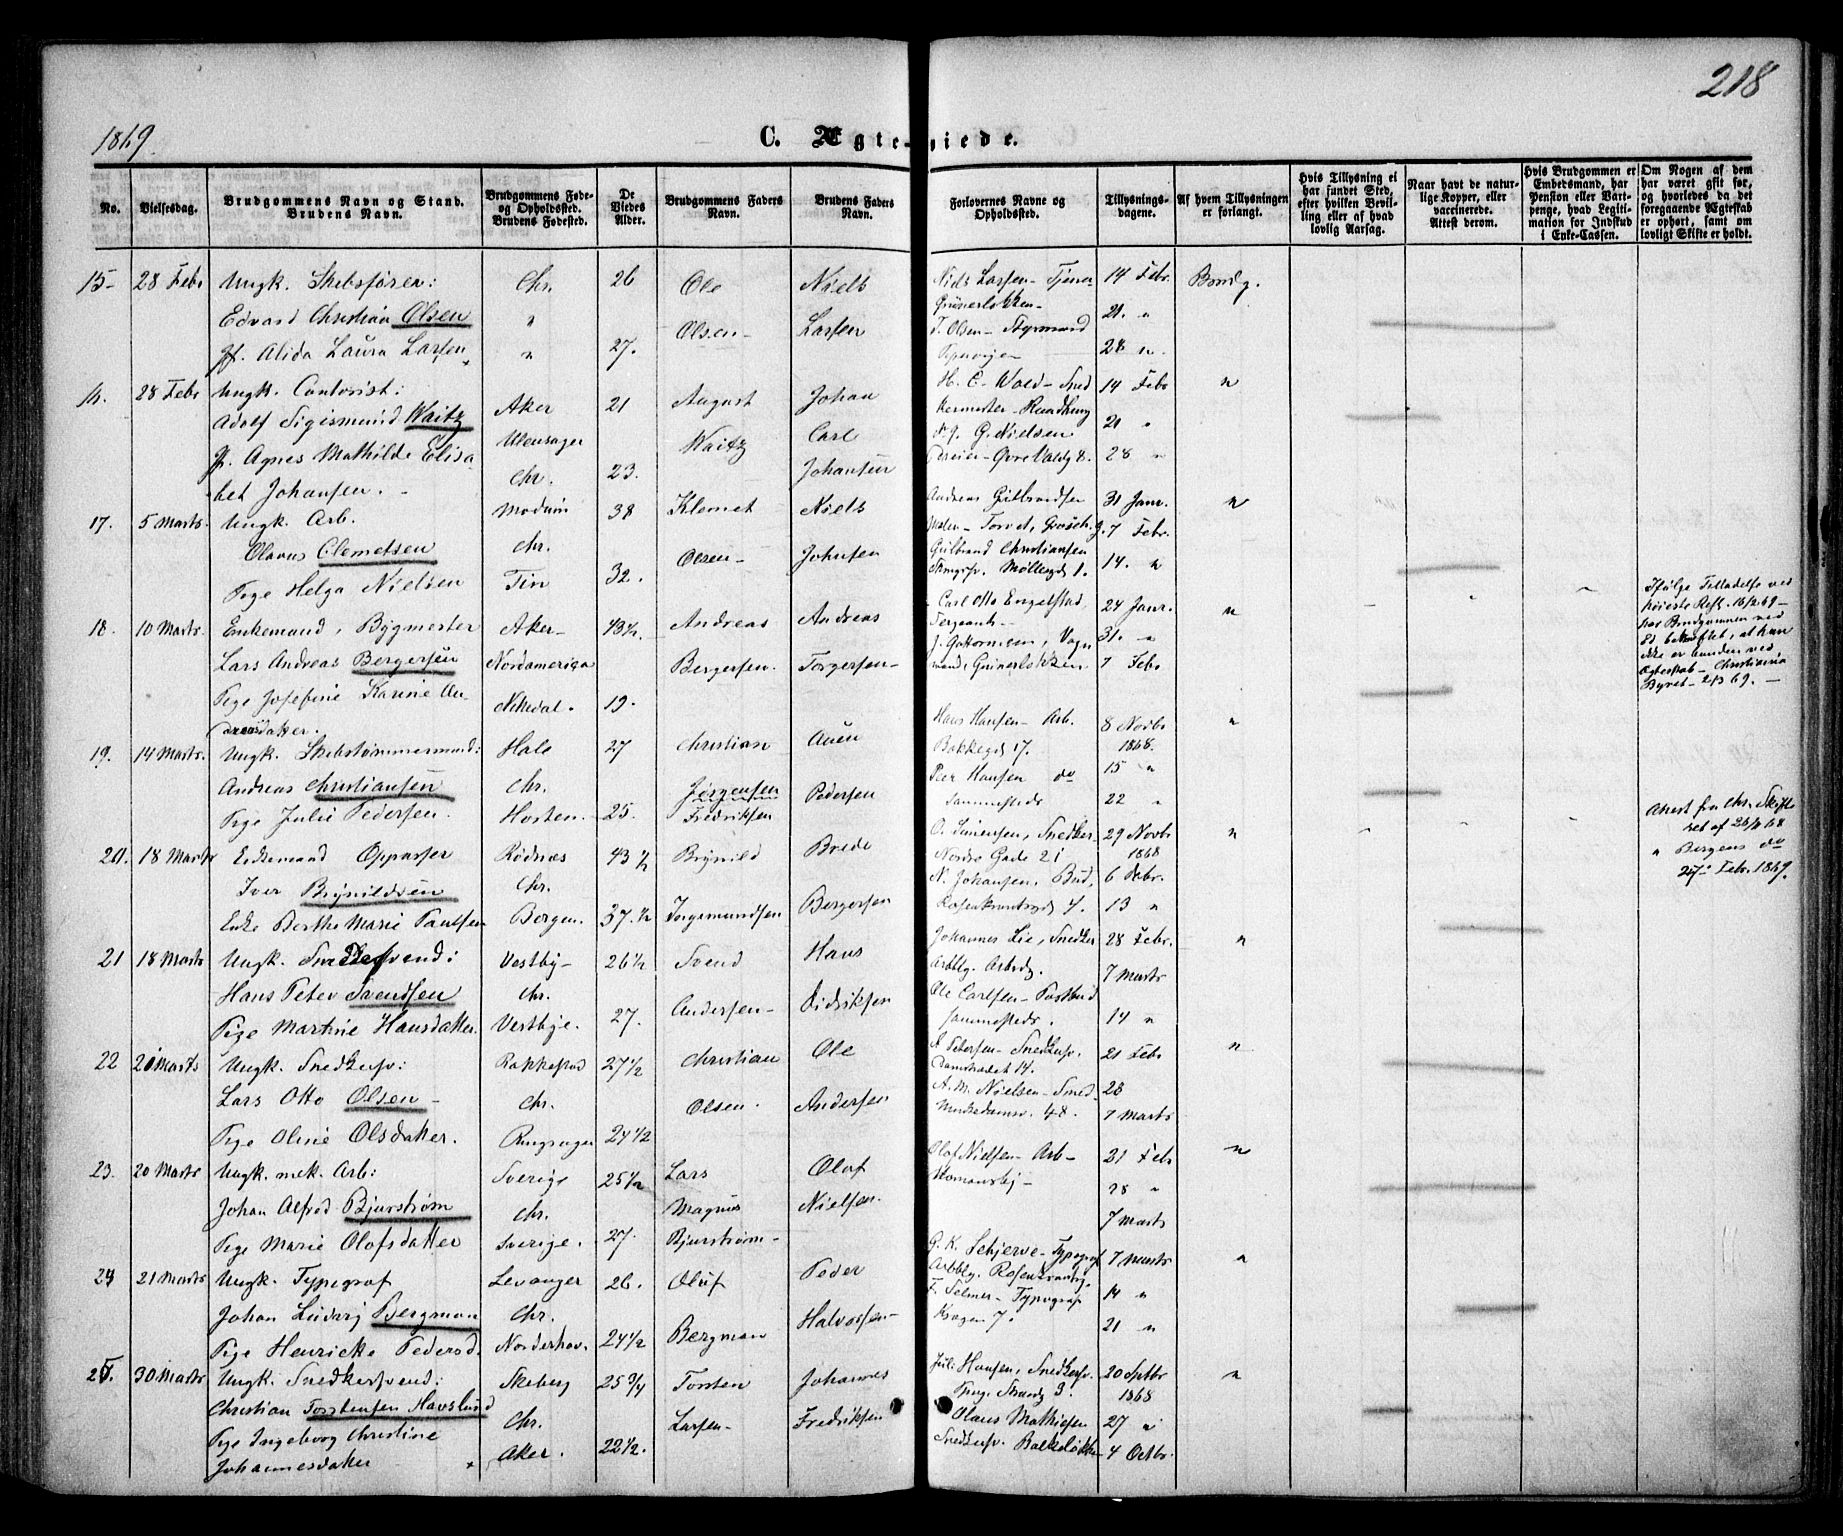 1869.
218
C. Ægteviede.
No.
Vielsesdag.
Brudgommens Navn og Stand.
Brudens Navn.
Brudgommens Føde-
og Opholdssted.
Brudens Fødested.
De
Viedes
Alder.
Brudgommens Faders
Navn.
Brudens Faders
Navn.
Forlovernes Navne og
Opholdssted.
Tillysnings-
dagene.
Af hvem Tillysningen
er forlangt.
Hvis Tillysning ei
har fundet Sted,
efter hvilken Bevil-
ling eller af hvad
lovlig Aarsag.
Naar havt de natur-
lige Kopper, eller
vaccinerede.
Attest derom.
Hvis Brudgommen er
Embedsmand, har
Pension eller Vart-
penge, hvad Legiti-
mation for Indskud
i Enke-Cassen.
Om Nogen af dem
har været gift før,
og hvorledes da det
foregaaende Ægteskab
er ophørt, samt om
lovligt Skifte er holdt.
15 28 Febr Ungk. Skibsfører: Chr. 26 Ole Niels Niels Larsen- 14 Febr. Brudg.
Edvard Christian Olsen " Olsen- Larsen Grünerløkken- 21. "
Pf. Alida Laura Larsen " 27. T. Olsen- Styrmand 28 "
16. 28 Febr Ungk. Contorist: Aker 21 August Johan 14 Febr "
Adolf Sigismund Waitz Ullensager Waitz Carl G. Nielsen 21 "
Pf. Agnes Mathilde Elisa- Chr. 23. Johansen 28 "
bet Johansen.
17. 5 Marts. Ungk. Arb. Modum 38 Klemet Niels Andreas Gulbrandsen 31 Janr. "
Olavus Clemetsen Chr. Olsen- Johnsen Torvet, 7 Febr.
Pige Helga Nielsen Tin 32. Gulbrand Christiansen Møllergd 1. 14. "
18. 10 Marts. Enkemand, Bygmester Aker- 43½ Andreas Andreas Carl Otto Engelstad, Sergeant- 24 Janr. "
Lars Andreas Bergersen Nordamerica Bergersen. Torgersen- 31. "
Pige Josefine Karine An- Nittedal. 19. Grünerløkken 7 Febr
dreasdatter.
Ifølge Tilladelse ved
høieste Resl. 16/2 69-
har Brudgommen ved
Ed bekræftet, at han
ikke er bunden ved
Ægteskab- Christiania
Byret- 2/3 69. -
19. 14 Marts. Ungk. Skibstømmermand: Hole 27 Christian Auen Hans Hansen- Arb. 8 Novbr "
Andreas Christiansen Chr. Jørgensen Pedersen Bakkegd 17. 1868.
Pige Julie Pedersen. Hosten. 25. Fredriksen Peer Hansen do 15 "
sammesteds 22 "
20. 18 Marts Enkemand Oppasser Rødnæs 43½ Brynild Brede O. Simensen, Snedker 29 Novbr "
Iver Brynildsen Chr. Nordre Gade 21 1868
Enke Berthe Marie Paulsen Bergen. 37.½ Ingemundsen Bergersen N. Johansen, Bud, 6 Debr.
Rosenkrantzgd 4. 13 "
Attest fra Chr. Skifte
ret af
" Bergens do
27 Febr. 1869.
21 18 Marts Ungk. Snedkersvend: Vestby- 26½ Svend Hans Johannes Lie, Snedker 28 Febr. "
Hans Peter Svendsen Chr. Andersen- Didriksen 7 Marts
Pige Martine Hansdatter. Vestbye. 27. Ole Carlsen- Postbud sammesteds. 14 "
22 20 Marts Ungk. Snedkersv: Rakkestad 27½ Christian Ole A Petersen- Snedkersv. 21 Febr "
Lars Otto Olsen- Chr. Olsen. Andersen Damstrædet 14. 28
Pige Oline Olsdatter. Ringsager 24½ A. M. Nielsen- 48. 7 Marts
23. 20 Marts Ungk. mek. Arb: Sverige 25½ Lars Olof Olof Nielsen- Arb- 21 Febr "
Johan Alfred Bjurstrøm Chr. Magnus Nielsen. Homansby- 28 "
Pige Marie Olofsdatter Sverige. 27. Bjurstrøm- 7 Marts
24 21 Marts Ungk. Typograf Levanger 26. Oluf Peder G. K. Schjerve- Typograf 7 Marts "
Johan Ludvig Bergman Chr. F. Selmer- Typograf 14 "
Pige Henricke Pedersd. Norderhov. 24½ Bergman Halvorsen- 7. 21 "
25. 30 Marts Ungk. Snedkersvend: Skeberg 25¾ Torsten Johannes Jul: Hansen, Snedkersv. 20 Septbr "
Christian Torstensen Havslund Chr. Larsen- Fredriksen 1868
Pige Ingeborg Christine Aker. 22½. Olaus Mathisen 27 "
Johannesdatter Snedkersv. Balkeløkken 4 Octbr.